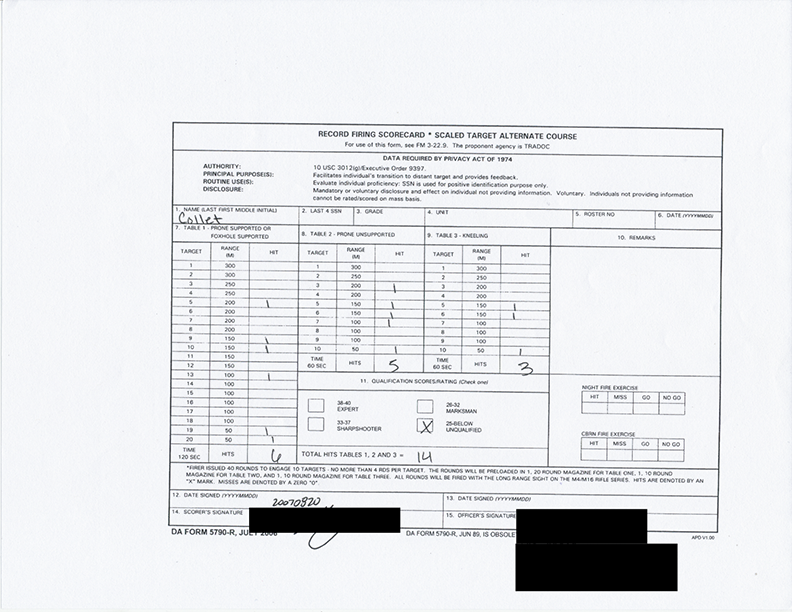 RECORD FIRING SCORECARD * SCALED TARGET ALTERNATE COURSE
For use of this form, see FM 3-22.9. The proponent agency is TRADOC
DATA REQUIRED BY PRIVACY ACT OF 1974
AUTHORITY: 10 USC 3012(g)/Executive Order 9397.
PRINCIPAL PURPOSE(S): Facilitates individual's transition to distant target and provides feedback.
ROUTINE USE(S): Evaluate individual proficiency: SSN is used for positive identification purpose only.
DISCLOSURE: Mandatory or voluntary disclosure and effect on individual not providing information. Voluntary. Individuals not providing information
cannot be rated/scored on mass basis.
1. NAME (LAST FIRST MIDDLE INITIAL) 2. LAST 4 SSN 3. GRADE 4. UNIT 5. ROSTER NO 6. DATE (YYYYMMDD)
Collet
7. TABLE 1 - PRONE SUPPORTED OR
FOXHOLE SUPPORTED
8. TABLE 2 - PRONE UNSUPPORTED
9. TABLE 3 - KNEELING
10. REMARKS
TARGET RANGE (M) HIT
1 300
2 300
3 250
4 250
5 200 1
6 200
7 200
8 200
9 150 1
10 150 1
11 150
12 150
13 100 1
14 100
15 100
16 100
17 100
18 100
19 50 1
20 50 1
TIME 120 SEC HITS 6
TARGET RANGE (M) HIT
1 300
2 250
3 200 1
4 200
5 150 1
6 150 1
7 100 1
8 100
9 100
10 50 1
TIME 60 SEC HITS 5
TARGET RANGE (M) HIT
1 300
2 250
3 200
4 200
5 150 1
6 150 1
7 100
8 100
9 100
10 50 1
TIME 60 SEC HITS 3
11. QUALIFICATION SCORES/RATING (Check one)
38-40
EXPERT
26-32
MARKSMAN
33-37
SHARPSHOOTER
X 25-BELOW
UNQUALIFIED
TOTAL HITS TABLES 1, 2 AND 3 = 14
NIGHT FIRE EXERCISE
HIT MISS GO NO GO
CBRN FIRE EXERCISE
HIT MISS GO NO GO
*FIRER ISSUED 40 ROUNDS TO ENGAGE 10 TARGETS - NO MORE THAN 4 RDS PER TARGET. THE ROUNDS WILL BE PRELOADED IN 1, 20 ROUND MAGAZINE FOR TABLE ONE, 1, 10 ROUND
MAGAZINE FOR TABLE TWO, AND 1, 10 ROUND MAGAZINE FOR TABLE THREE. ALL ROUNDS WILL BE FIRED WITH THE LONG RANGE SIGHT ON THE M4/M16 RIFLE SERIES. HITS ARE DENOTED BY AN
"X" MARK. MISSES ARE DENOTED BY A ZERO "0".
12. DATE SIGNED (YYYYMMDD) 20070920
13. DATE SIGNED (YYYYMMDD)
14. SCORER'S SIGNATURE
15. OFFICER'S SIGNATURE
DA FORM 5790-R,
DA FORM 5790-R, JUN 89, IS OBSOLET
APD V1.00